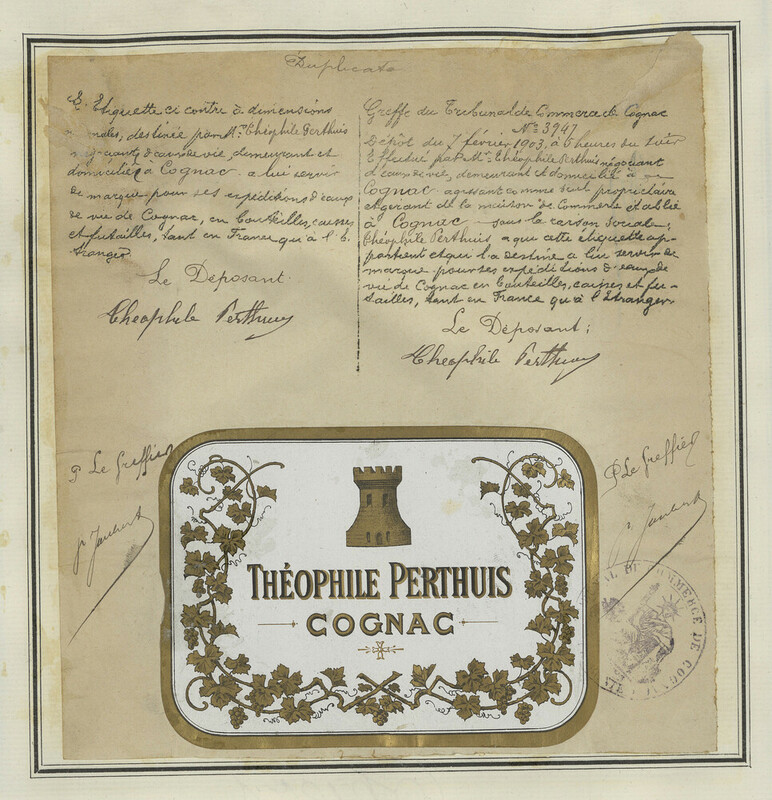 Duplicata
L'Etiquette ci contre à dimensions
normales, destinée par Mr. Théophile Perthuis
négociant d'eaux de vie, demeurant et
domicilié à Cognac a lui servir
de marque pour ses expéditions d'eaux
de vie de Cognac, en bouteilles, caisses
et futailles, tant en France qu'à l'E
tranger
Le Déposant.
Théophile Perthuis
Greffe du Tribunal de Commerce de Cognac
No 3947
Dépôt du 7 février 1903, à 5 heures du soir
Effectué par Mr. Théophile Perthuis négociant
d'eaux de vie, demeurant et domicilié à
Cognac agissant comme seul propriétaire
et gérant de la maison de Commerce établie
à Cognac sous la raison sociale;
Théophile Perthuis, a qui cette étiquette ap-
partient et qui l'a destine a lui servir de
marque pour ses expéditions d'eaux de
vie de Cognac en bouteilles, caisses et fu-
tailles, tant en France qu'à l'Etranger
Le Déposant;
Théophile Perthuis
P Le Greffier
Jaubert
P Le Greffier
Jaubert
THÉOPHILE PERTHUIS
COGNAC
DE COMMERCE DE COGNAC